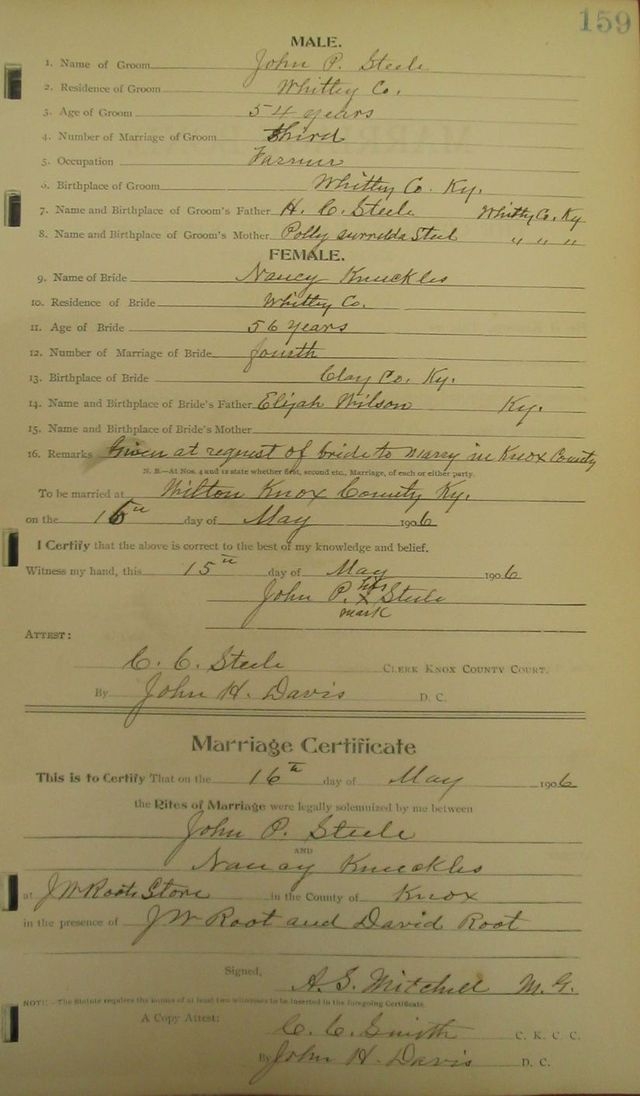 159
MALE.
1. Name of Groom John P. Steele
2. Residence of Groom Whitley Co.
3. Age of Groom 54 years
4. Number of Marriage of Groom third
5. Occupation Farmer
6. Birthplace of Groom Whitley Co. Ky.
7. Name and Birthplace of Groom's Father H. C. Steele Whitley Co. Ky
8. Name and Birthplace of Groom's Mother Polly Steel " " "
FEMALE.
9. Name of Bride Nancy Knuckles
10. Residence of Bride Whitley Co.
11. Age of Bride 56 years
12. Number of Marriage of Bride fourth
13. Birthplace of Bride Clay Co. Ky.
14. Name and Birthplace of Bride's Father Elijah Wilson Ky.
15. Name and Birthplace of Bride's Mother
16. Remarks Given at request of bride to marry in Knox County
N. B.—At Nos. 4 and 12 state whether first, second etc., Marriage, of each or either party.
To be married at Wilton Knox County Ky.
on the 16th day of May 1906
I Certify that the above is correct to the best of my knowledge and belief.
Witness my hand, this 15th day of May 1906
John P. his x mark Steele
ATTEST:
C. C. Steele CLERK KNOX COUNTY COURT.
By John H. Davis D. C.
Marriage Certificate
This is to Certify That on the 16th day of May 1906
the Rites of Marriage were legally solemnized by me between
John P. Steele
AND
Nancy Knuckles
at J W Roots Store in the County of Knox
in the presence of J W Root and David Root
Signed, A. S. Mitchell M. G.
NOTE:—The Statute requires the names of at least two witnesses to be inserted in the foregoing Certificate.
A Copy Attest: C. C. Smith C. K. C. C.
By John H. Davis D. C.